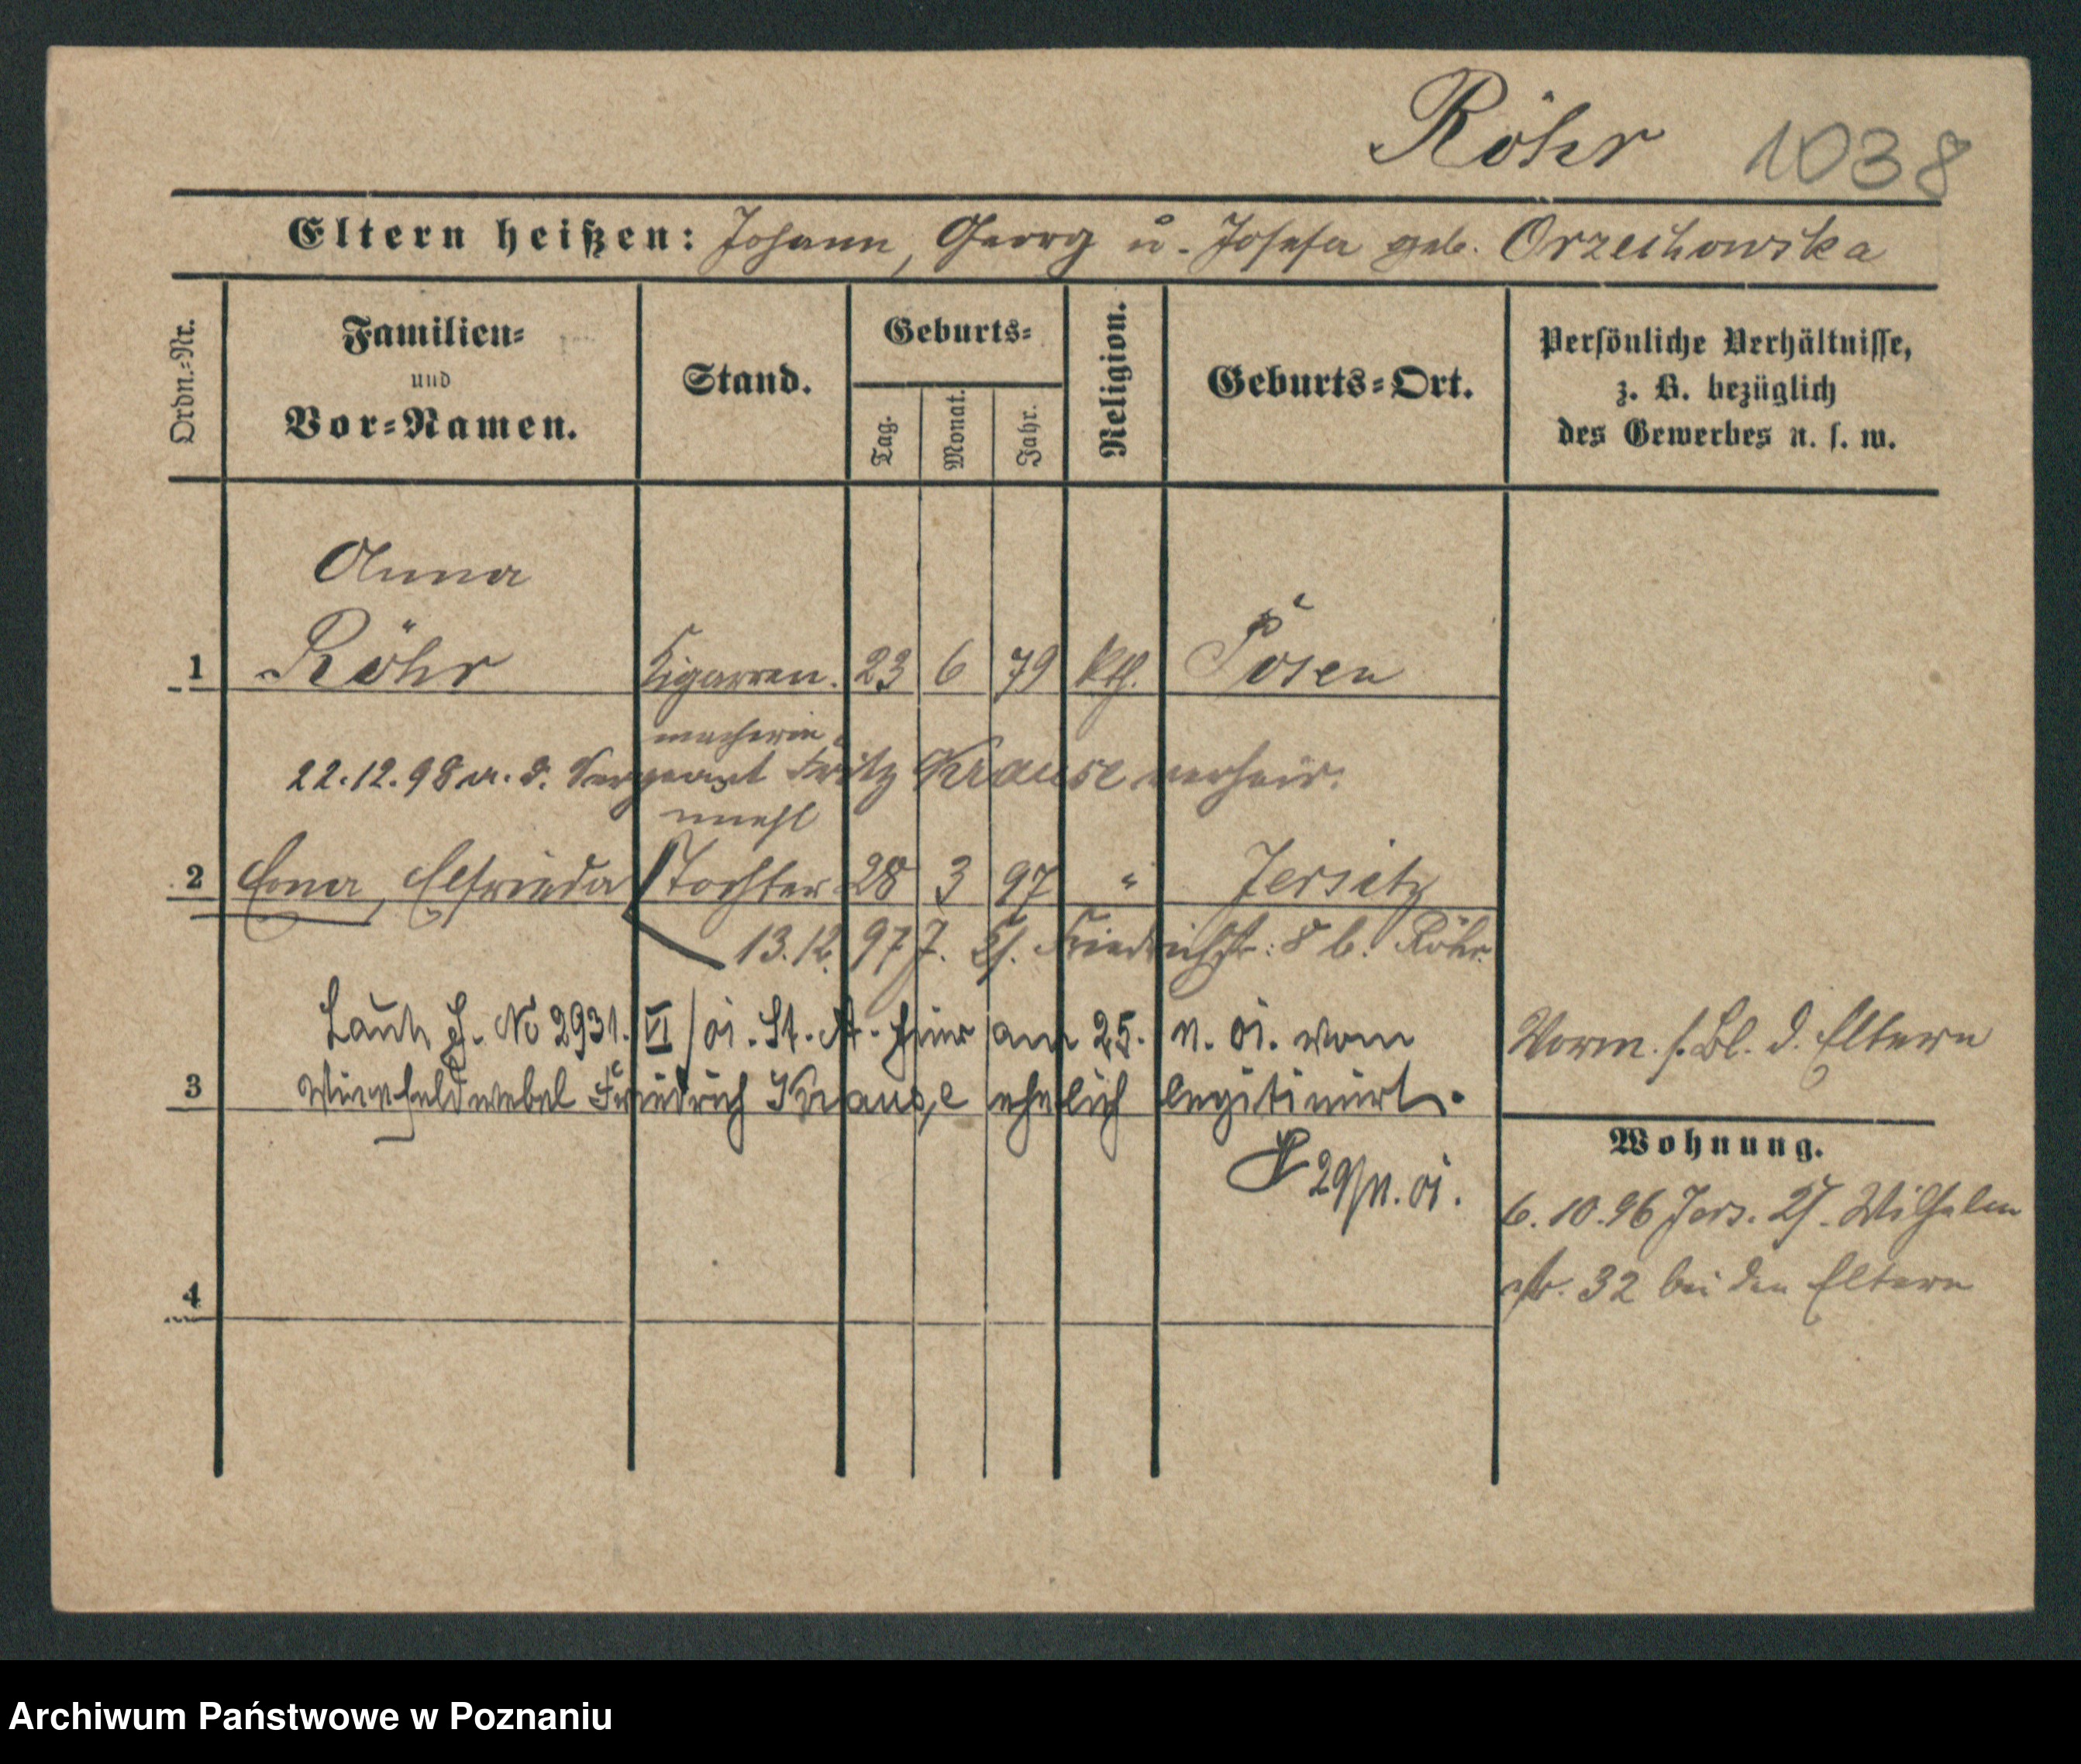 Röhr 1038
Eltern heißen: Johann, Georg u. Josefa geb. Orzechowska
Ordn.=Nr.
Familien=
und
Vor=Namen.
Stand.
Geburts=
Tag.
Monat.
Jahr.
Religion.
Geburts=Ort.
Persönliche Verhältnisse,
z. B. bezüglich
des Gewerbes u. s. w.
Anna
1 Röhr Zigarren. 23 6 79 kth. Posen
macherin
22.12.98 m. d. Sergeant Fritz Krause verheir.
unehl
2 Erna, Elfrieda Tochter 28 3 97 " Jersitz
13.12. 97 J. Friedrichstr: 8 b. Röhr.
Laut J. No 2931. VI/01. St. A. hier am 25. 11. 01. vom
3 Vizefeldwebel Friedrich Krause ehelich legitimirt.
29/11. 01.
4
Vorm. s. Bl. d. Eltern
Wohnung.
6. 10. 96 Jers. Wilhelm
str. 32 bei den Eltern
Archiwum Państwowe w Poznaniu